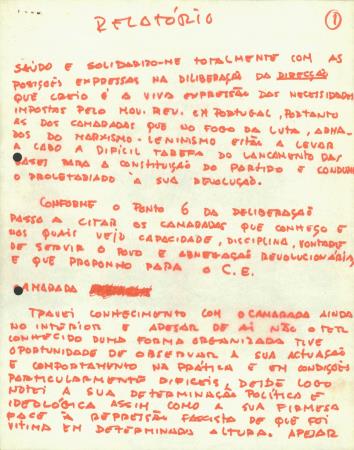 RELATÓRIO
1
SAÚDO E SOLIDARIZO-ME TOTALMENTE COM AS
POSIÇÕES EXPRESSAS NA DILIBERAÇÃO DA DIRECÇÃO
QUE CREIO É A VIVA EXPRESSÃO DAS NECESSIDADES
IMPOSTAS PELO MOV. REV. EM PORTUGAL, PORTANTO
AS DOS CAMARADAS QUE NO FOGO DA LUTA, ARMA-
DOS DO MARXISMO-LENINISMO ESTÃO A LEVAR
A CABO A DIFÍCIL TAREFA DO LANÇAMENTO DAS
BASES PARA A CONSTITUIÇÃO DO PARTIDO E CONDUZIR
O PROLETARIADO À SUA REVOLUÇÃO.
CONFORME O PONTO 6 DA DELIBERAÇÃO
PASSO A CITAR OS CAMARADAS QUE CONHEÇO E
NOS QUAIS VEJO CAPACIDADE, DISCIPLINA, VONTADE
DE SERVIR O POVO E ABNEGAÇÃO REVOLUCIONÁRIA,
E QUE PROPONHO PARA O C.E.
CAMARADA
TRAVEI CONHECIMENTO COM O CAMARADA AINDA
NO INTERIOR E APESAR DE AÍ NÃO O TER
CONHECIDO DUMA FORMA ORGANIZADA TIVE
OPORTUNIDADE DE OBSERVAR A SUA ACTUAÇÃO
E COMPORTAMENTO NA PRÁTICA E EM CONDIÇÕES
PARTICULARMENTE DIFICEIS, DESDE LOGO
NOTEI A SUA DETERMINAÇÃO POLÍTICA E
IDEOLÓGICA ASSIM COMO A SUA FIRMESA
FACE À REPRESSÃO FASCISTA DE QUE FOI
VITIMA EM DETERMINADA ALTURA. APESAR